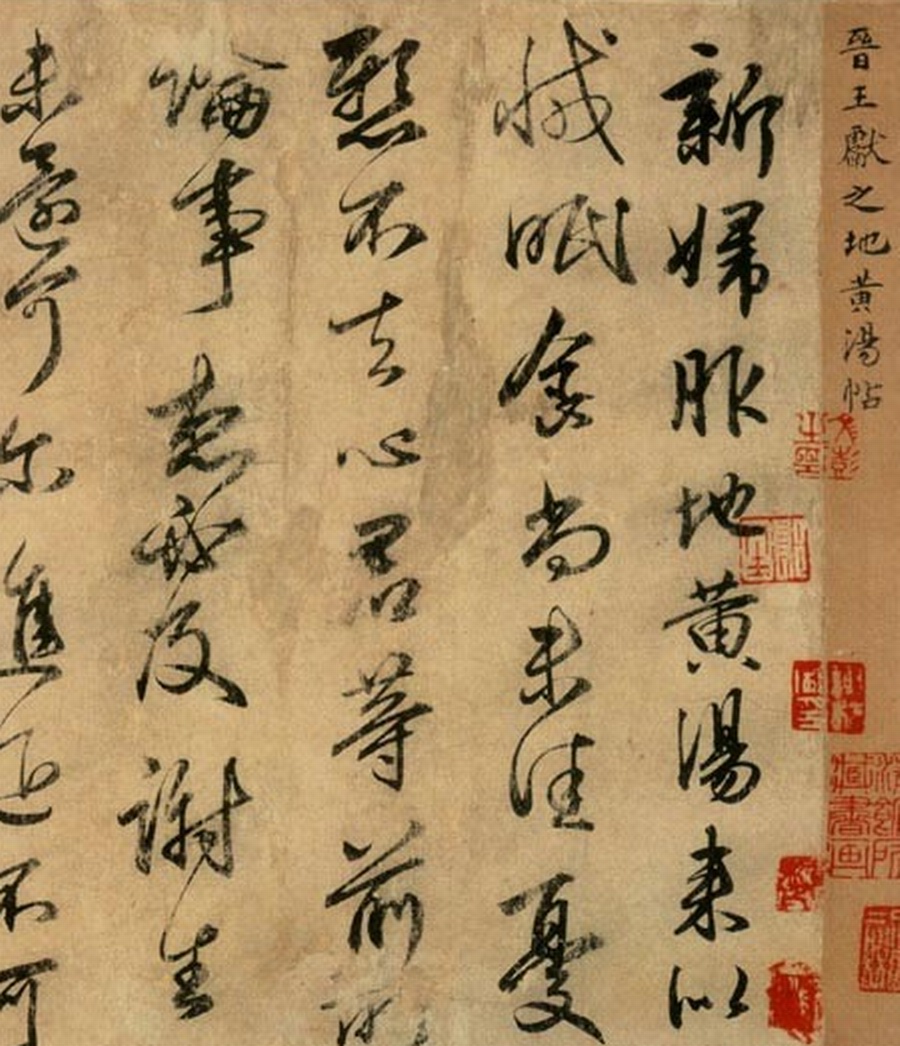 晉王獻之地黃湯帖
新婦服地黄湯来似
減眠食尚未佳憂
懸不去心君等前所
論事想必及謝生
未還可尔進退不可